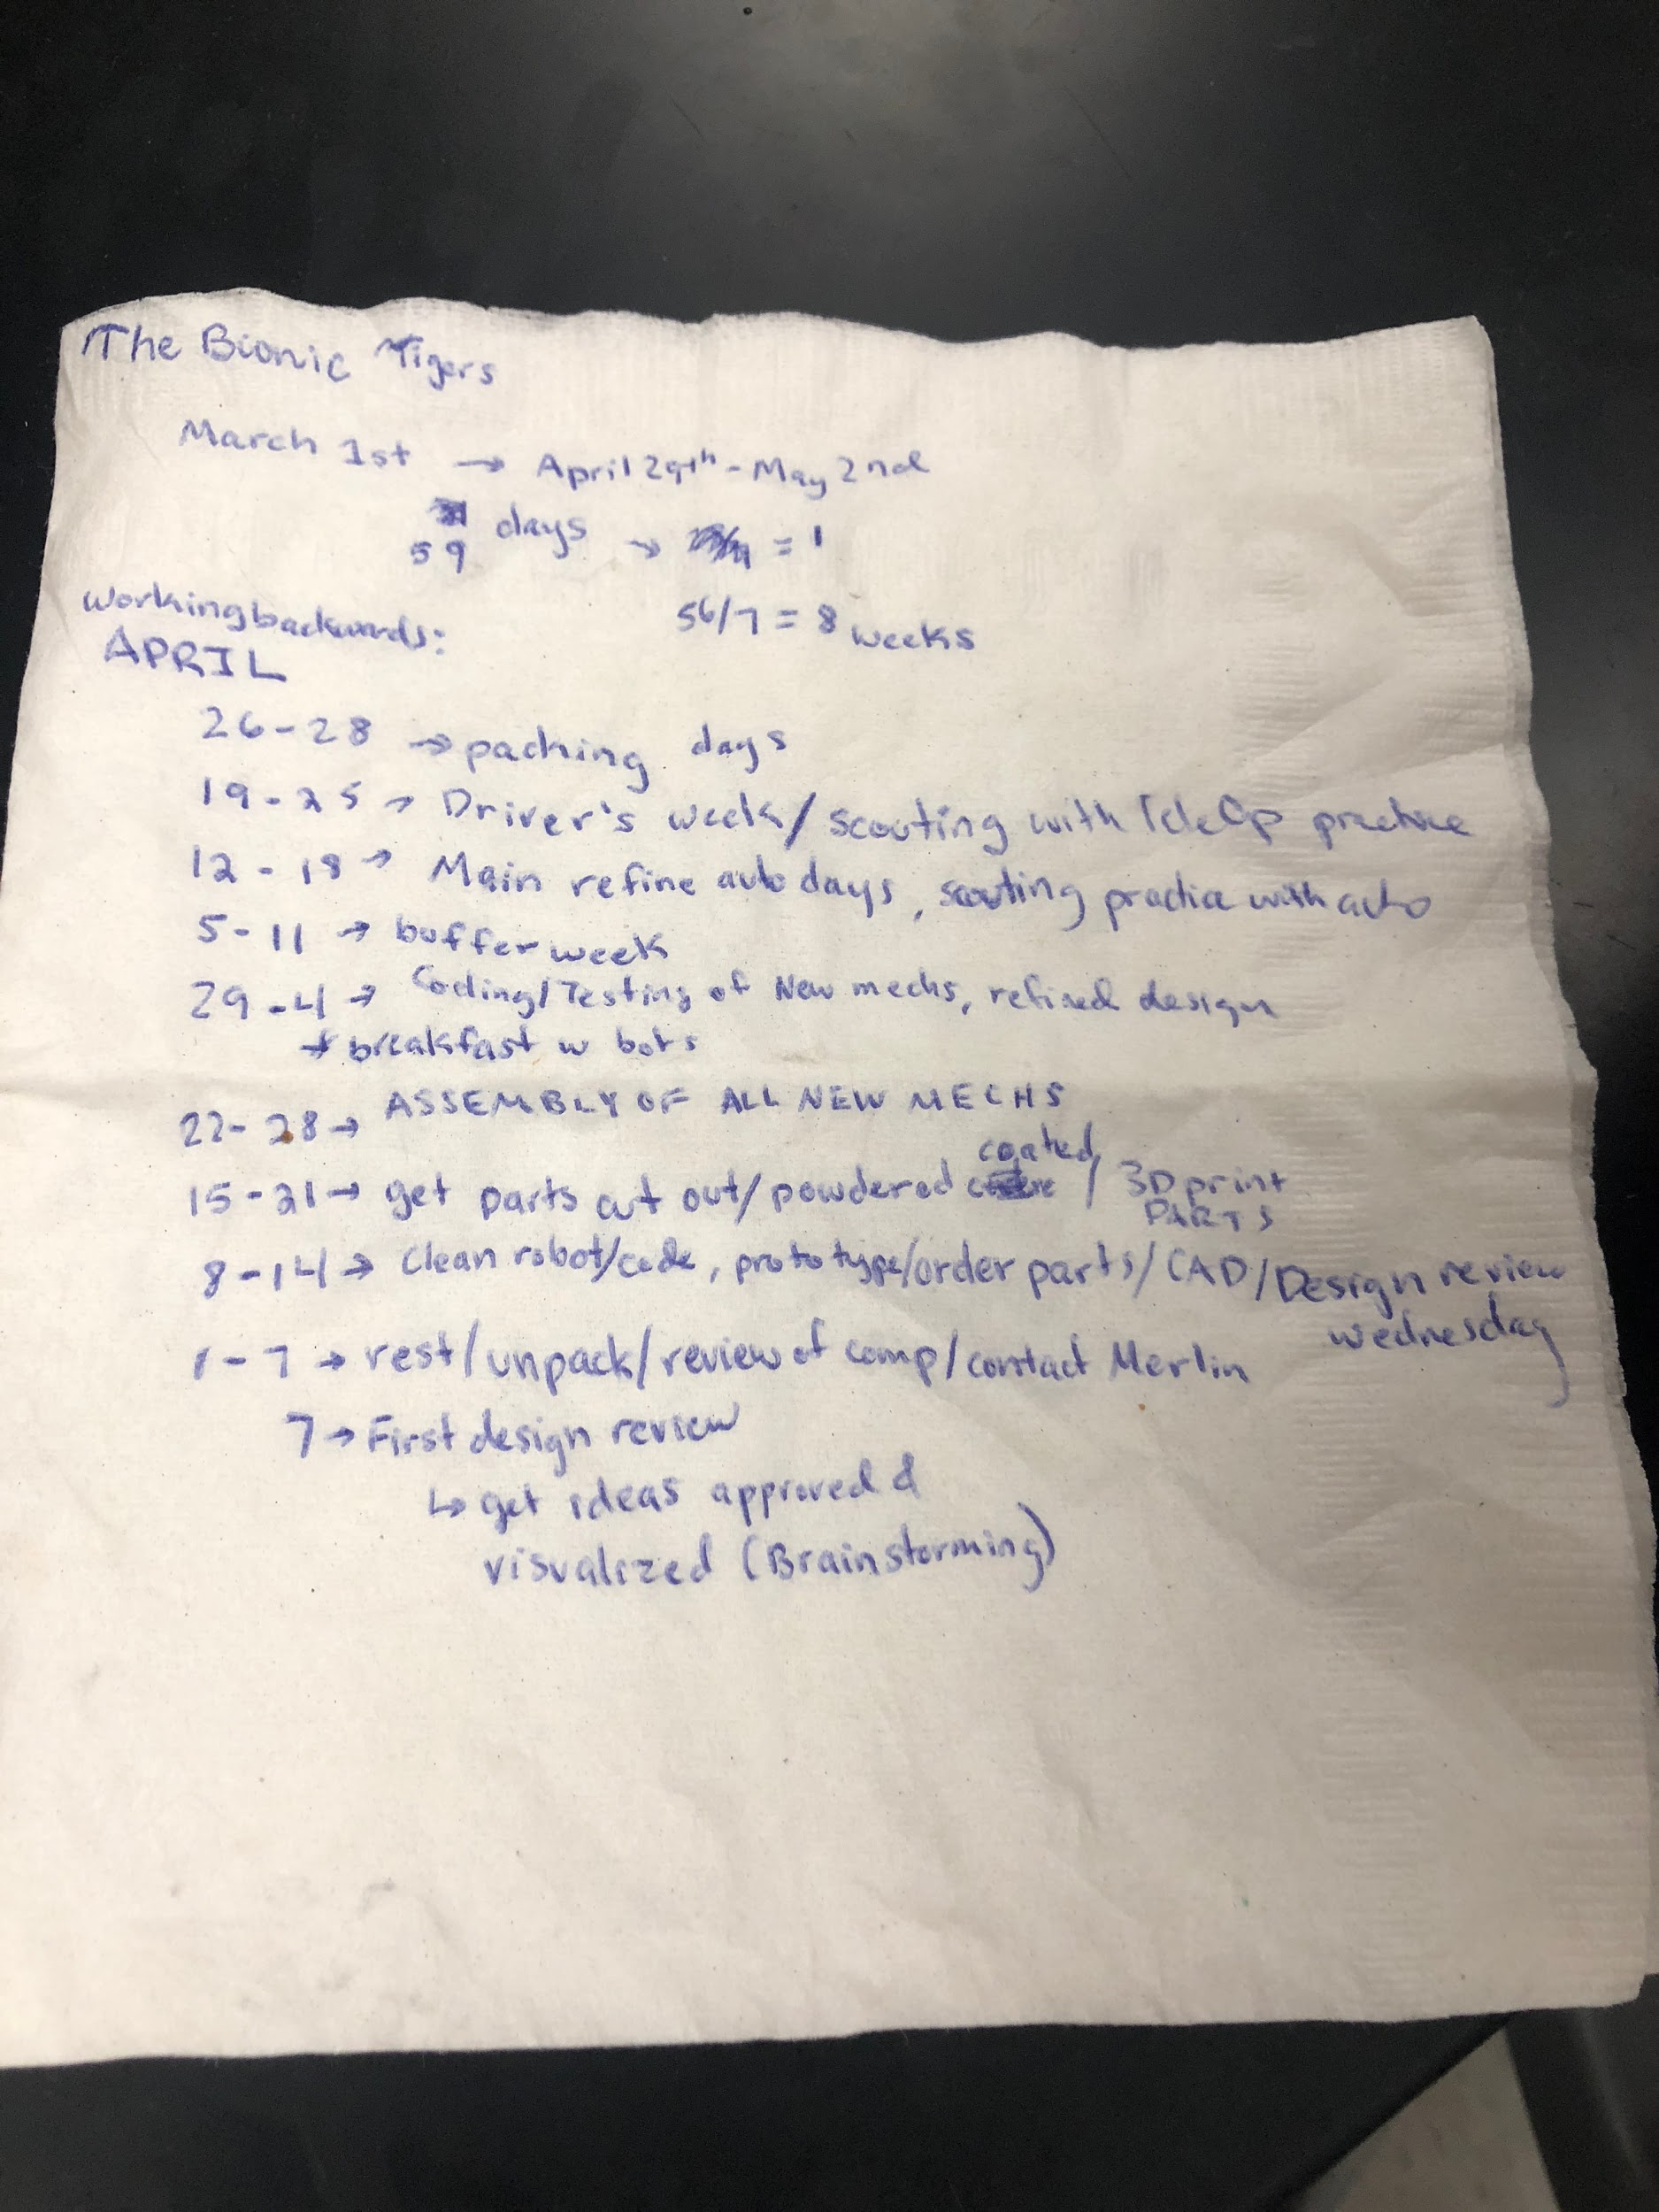 The Bionic Tigers
March 1st → April 29th - May 2nd
59 days → = 1
56/7 = 8 weeks
working backwards:
APRIL
26-28 → packing days
19-25 → Driver's week/scouting with TeleOp practice
12-18 → Main refine auto days, scouting practice with auto
5-11 → buffer week
29-4 → Coding/Testing of New mechs, refined design
+ breakfast w bots
22-28 → ASSEMBLY OF ALL NEW MECHS
15-21 → get parts cut out/powdered coated/3D print
PARTS
8-14 → Clean robot/code, prototype/order parts/CAD/Design review
wednesday
1-7 → rest/unpack/review of comp/contact Merlin
7 → First design review
↳ get ideas approved &
visualized (Brainstorming)